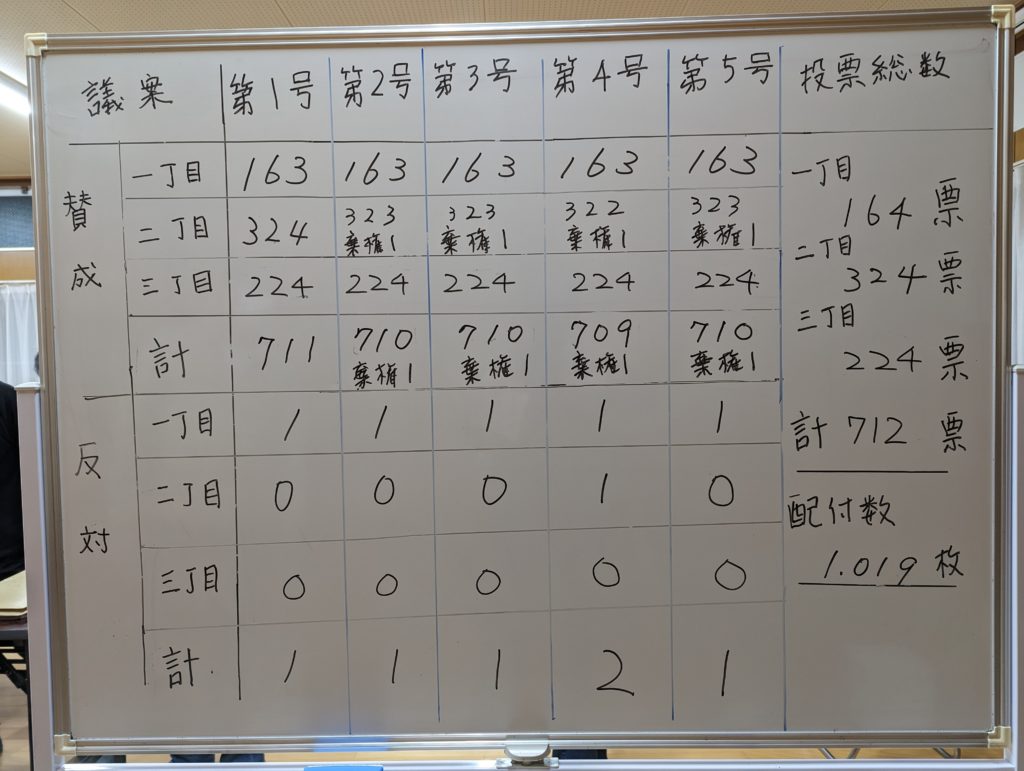 議案 第1号 第2号 第3号 第4号 第5号 投票総数
賛成
一丁目 163 163 163 163 163
二丁目 324 323 323 322 323
棄権1 棄権1 棄権1 棄権1
三丁目 224 224 224 224 224
計 711 710 710 709 710
棄権1 棄権1 棄権1 棄権1
反対
一丁目 1 1 1 1 1
二丁目 0 0 0 1 0
三丁目 0 0 0 0 0
計 1 1 1 2 1
一丁目
164票
二丁目
324票
三丁目
224票
計 712票
配付数
1.019枚